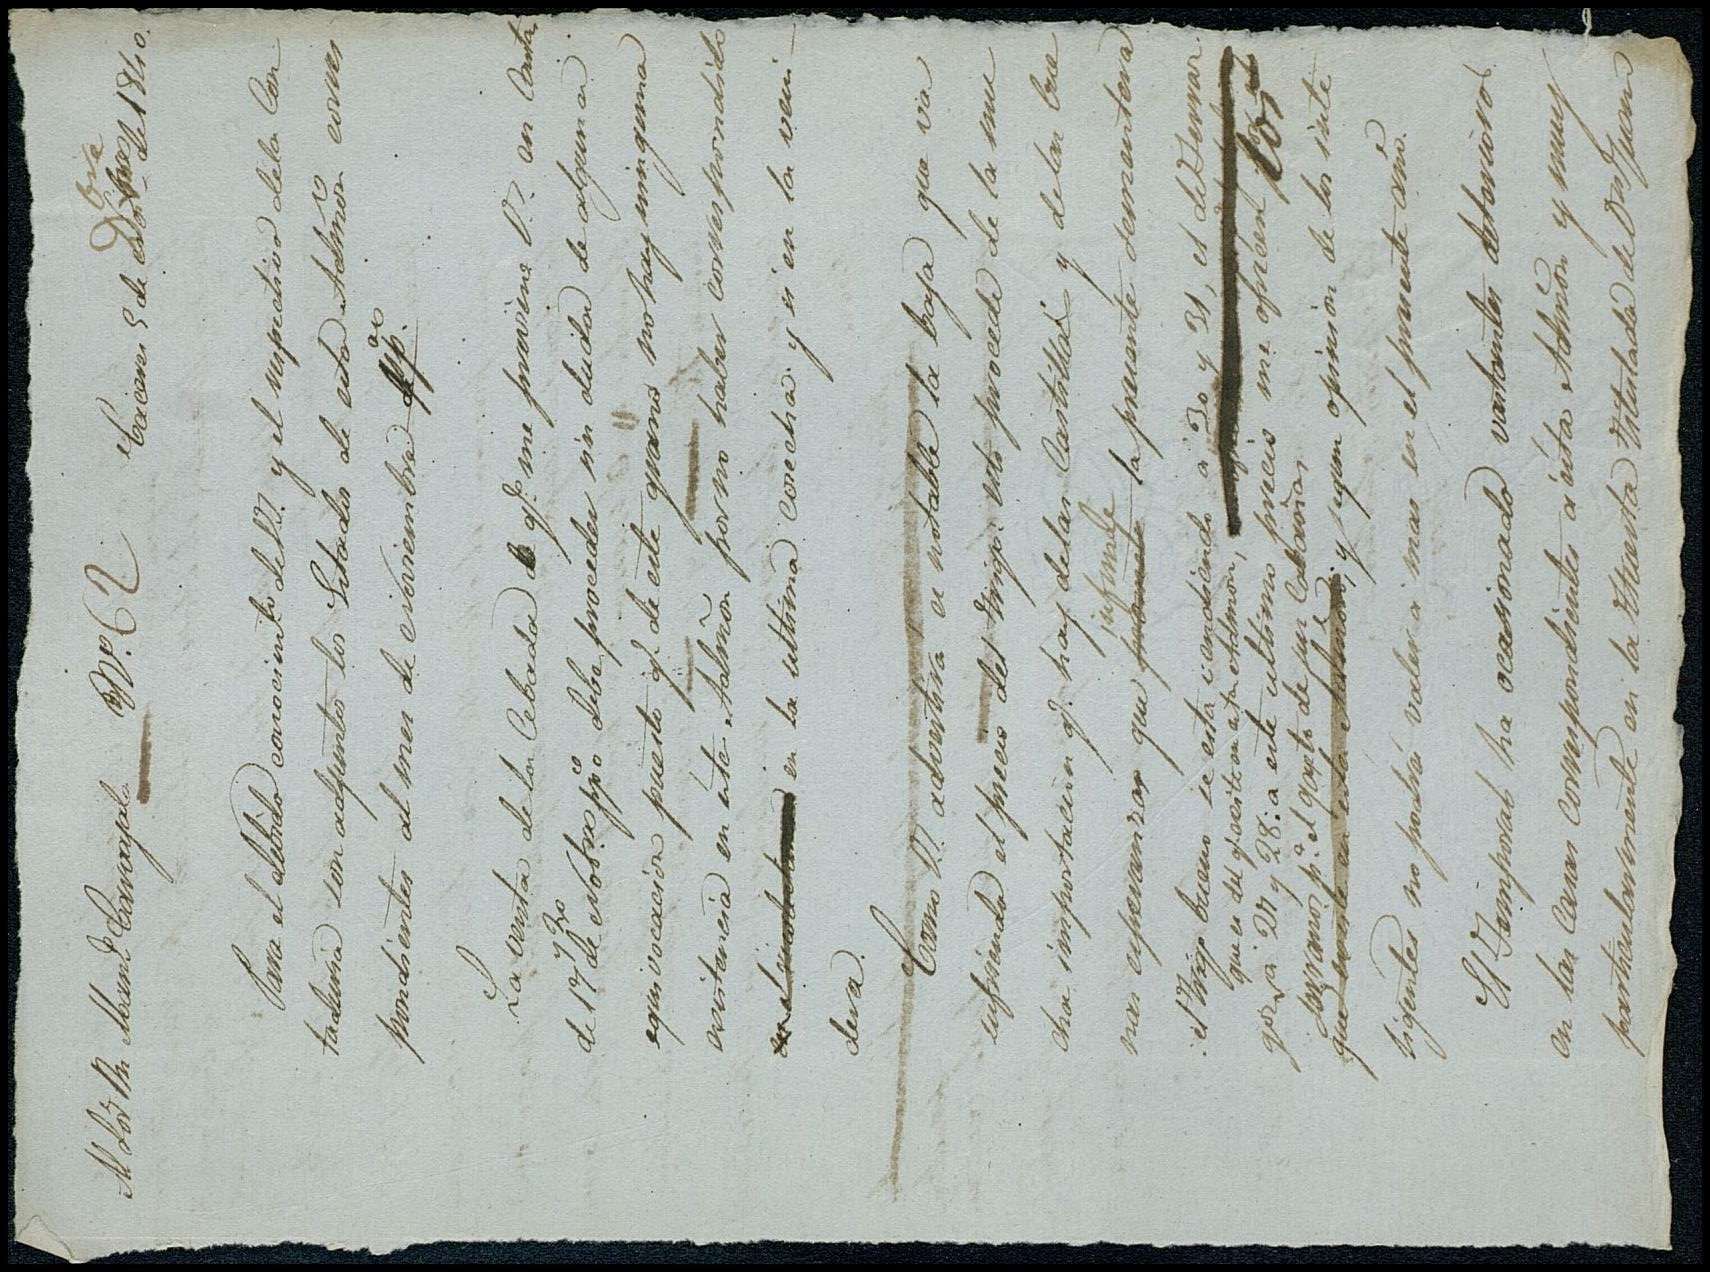 Al Sor Dn Man.l Carvajal Nº. 62 Cáceres 5 de Dbre de 1840.
Para el debido conocimiento de V. y el respectivo de la Con
taduria son adjuntos los Estados de esta Admon corres
pondientes al mes de Noviembre
La venta de la Cebada q.e me previene V. en carta
de 17 de Nobre ppo debe proceder sin duda de alguna
equivocacion puesto q.e de este grano no hay ninguna
existencia en esta Admon por no haber correspondido
en la ultima cosecha y es en la veni
dera.
Como V. advertirá es notable la baja que va
sufriendo el precio del trigo: esto procede de la mu
cha importacion q.e hay de las Castillas y de las bue
nas esperanzas que presente la presente sementera
el trigo bueno se está vendiendo a 30 y 31, el de Ternar
que es del q.e existe en esta Admon,
gor a 27 y 28: a este ultimo precio me ofrecen los
y segun opinion de los inte
ligentes no podrá valer a mas en el presente año.
El Temporal ha ocasionado bastantes deterioros
en las Casas correspondientes a esta Admon y muy
particularmente en la Huerta titulada de Dn Juan